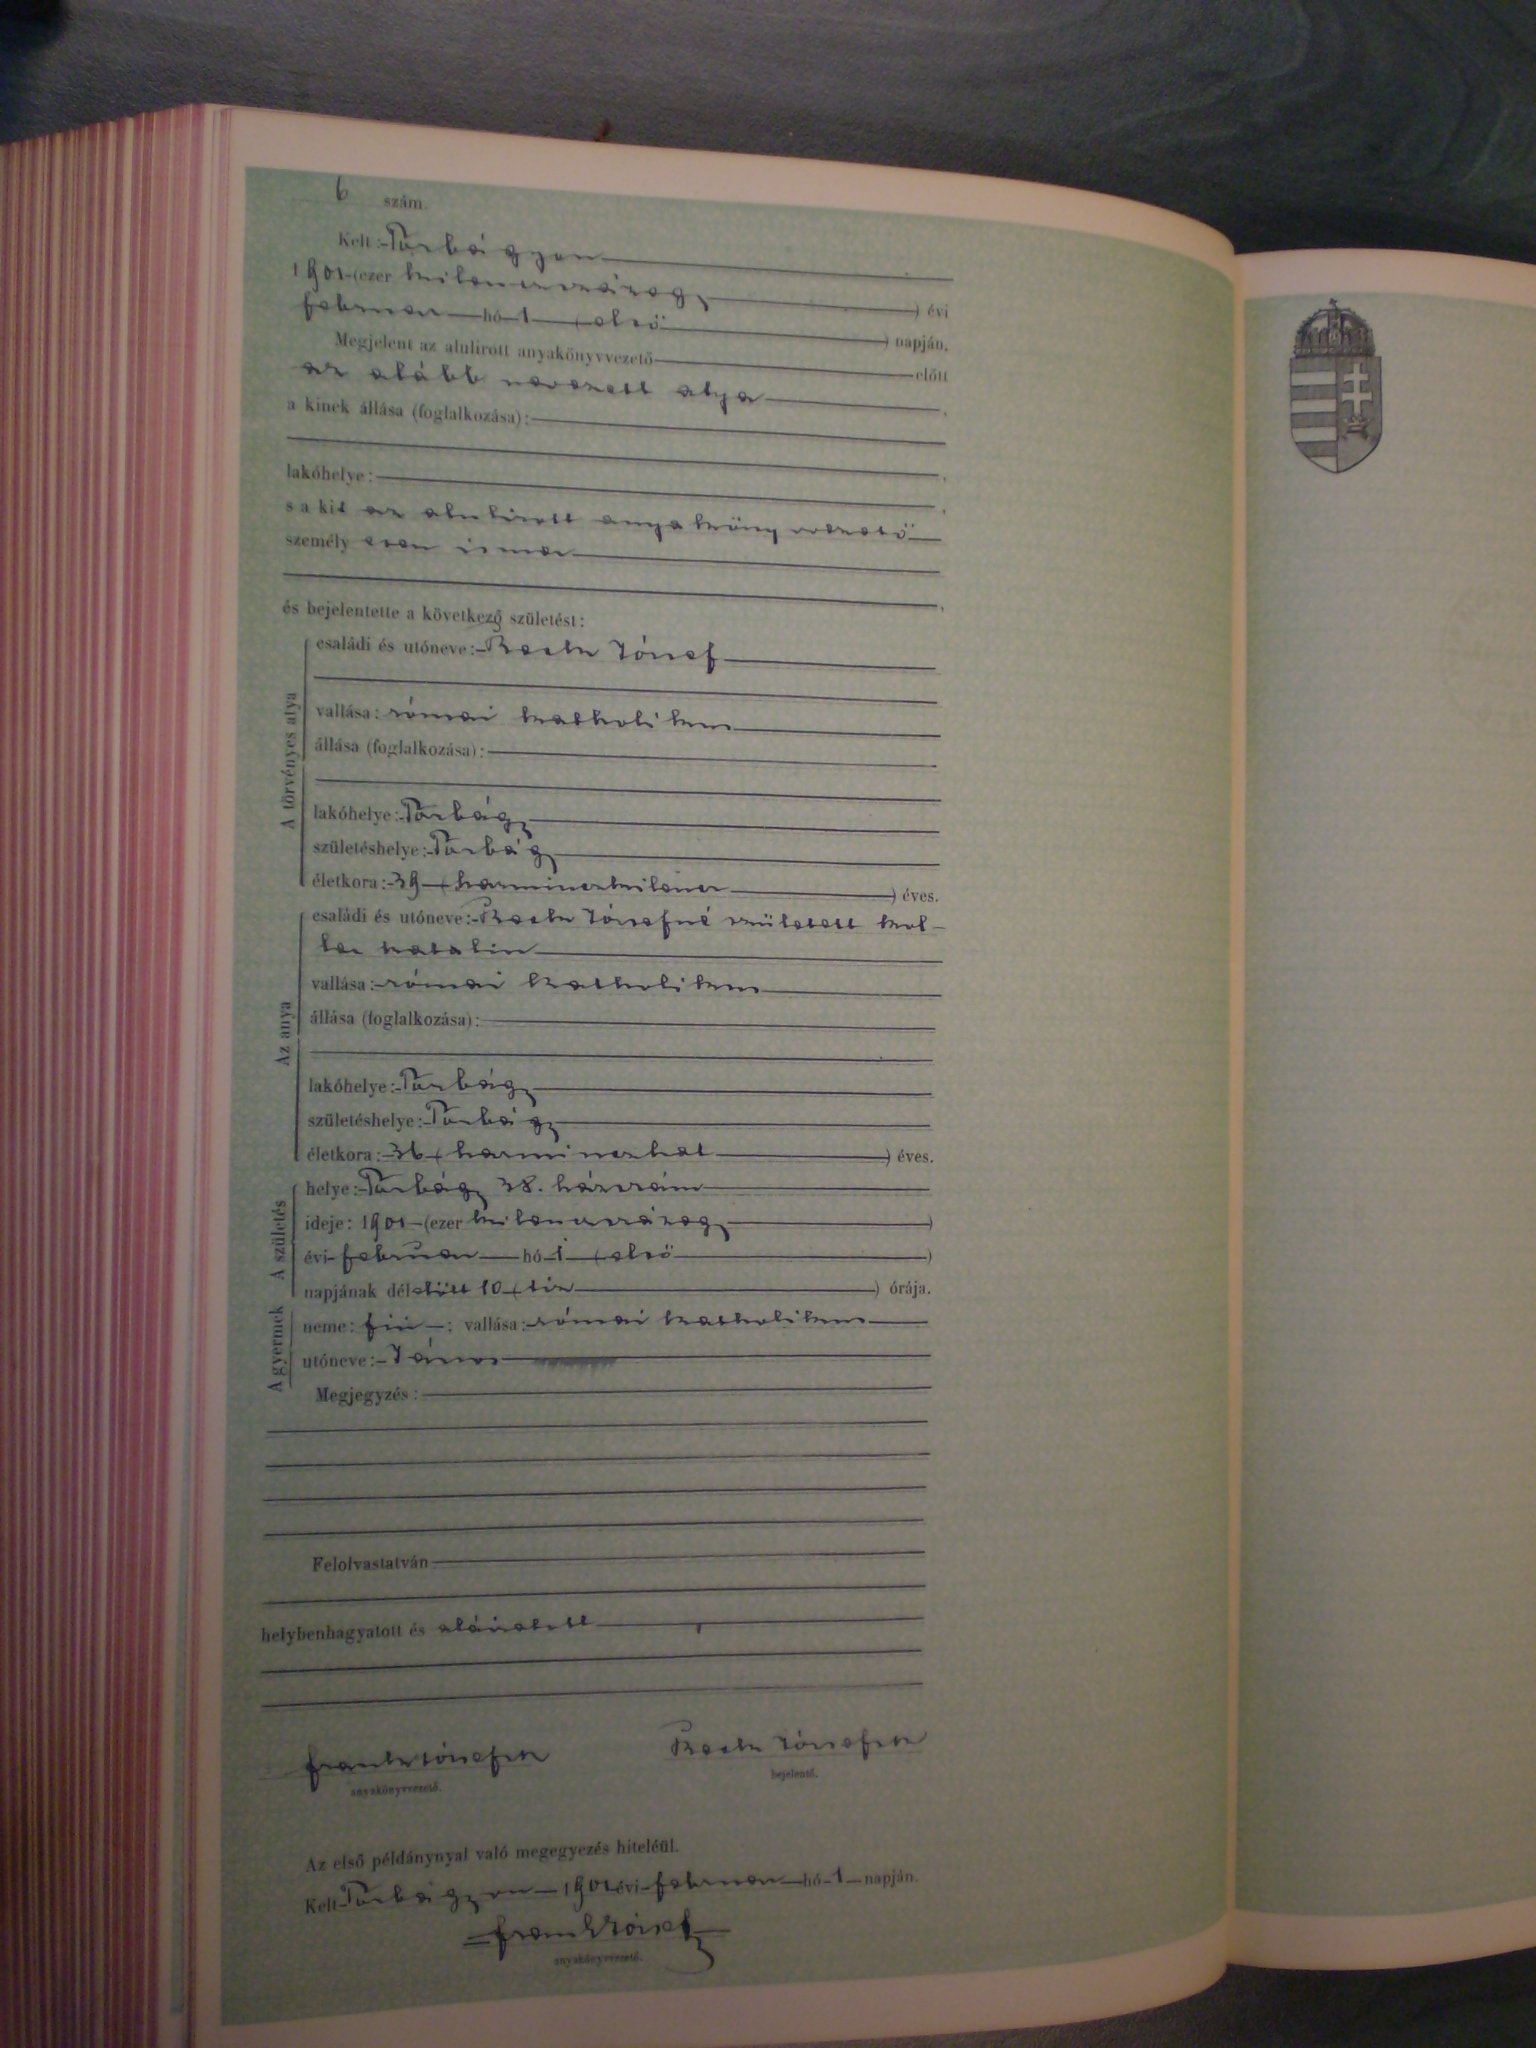 6 szám.
Kelt: Törbágyon
1901 (ezer kilenczszázegy) évi
február hó 1 (első) napján.
Megjelent az alulirott anyakönyvvezető előtt
az alább nevezett atya,
a kinek állása (foglalkozása):
lakóhelye:
s a kit az alulirott anyakönyvvezető
személyesen ismer
és bejelentette a következő születést:
A törvényes atya
családi és utóneve: József
vallása: római katholikus
állása (foglalkozása):
lakóhelye: Törbágy
születéshelye: Törbágy
életkora: 39 (harminczkilencz) éves.
Az anya
családi és utóneve: Józsefné született Kol-
ler Katalin
vallása: római katholikus
állása (foglalkozása):
lakóhelye: Törbágy
születéshelye: Törbágy
életkora: 36 (harminczhat) éves.
A születés
helye: Törbágy 38. házszám
ideje: 1901 (ezer kilenczszázegy)
évi február hó 1 (első)
napjának délelőtt 10 (tíz) órája.
A gyermek
neme: fiú; vallása: római katholikus
utóneve: János
Megjegyzés:
Felolvastatván
helybenhagyatott és aláíratott,
anyakönyvvezető.
bejelentő.
Az első példánynyal való megegyezés hiteléül.
Kelt Törbágyon 1901 évi február hó 1 napján.
Frank József
anyakönyvvezető.